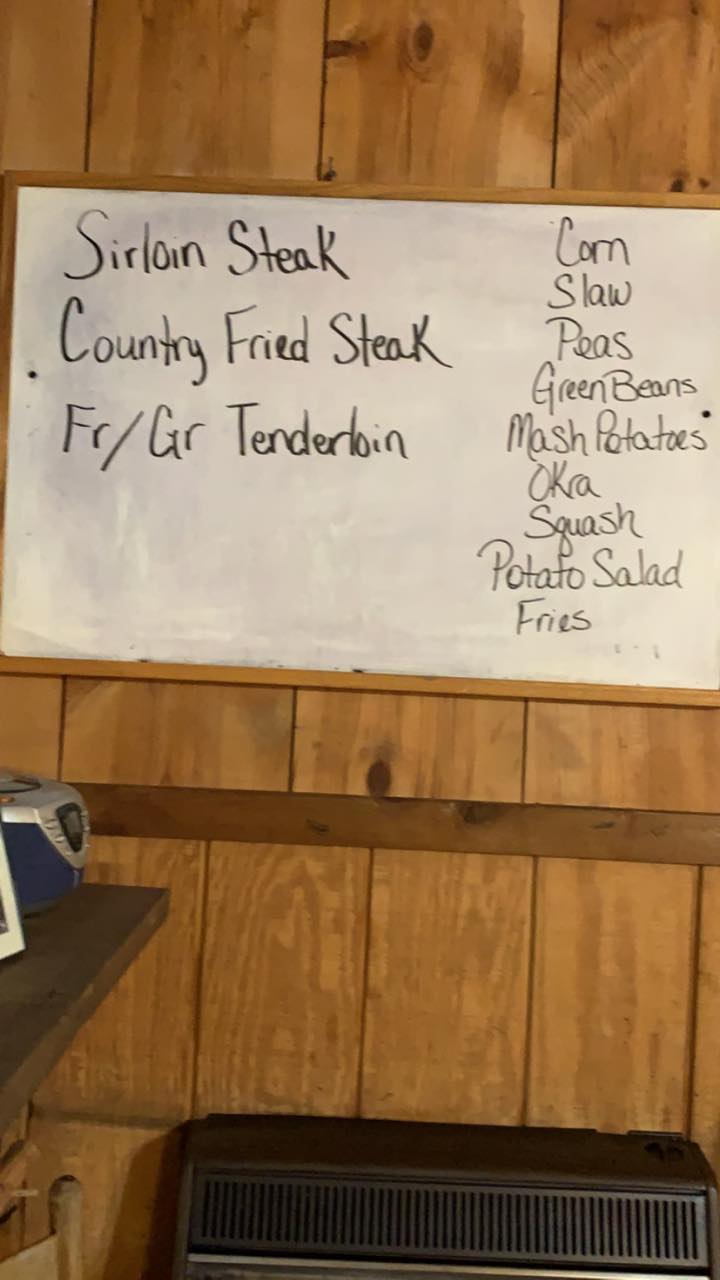 Sirloin Steak
Country Fried Steak
Fr/Gr Tenderloin
Corn
Slaw
Peas
Green Beans
Mash Potatoes
Okra
Squash
Potato Salad
Fries